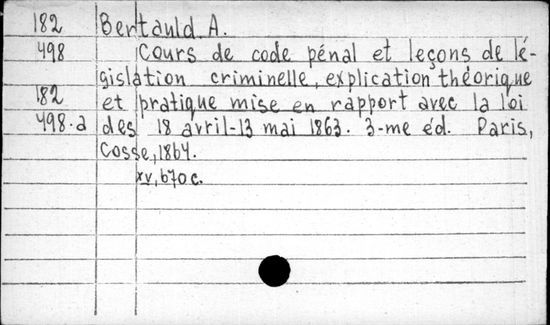 182 Bertauld A.
498 Cours de code pénal et leçons de lé-
gislation criminelle, explication théorique
182 et pratique mise en rapport avec la loi
498.a des 18 avril-13 mai 1863. 3-me éd. Paris,
Cosse, 1864.
xv, 670 c.